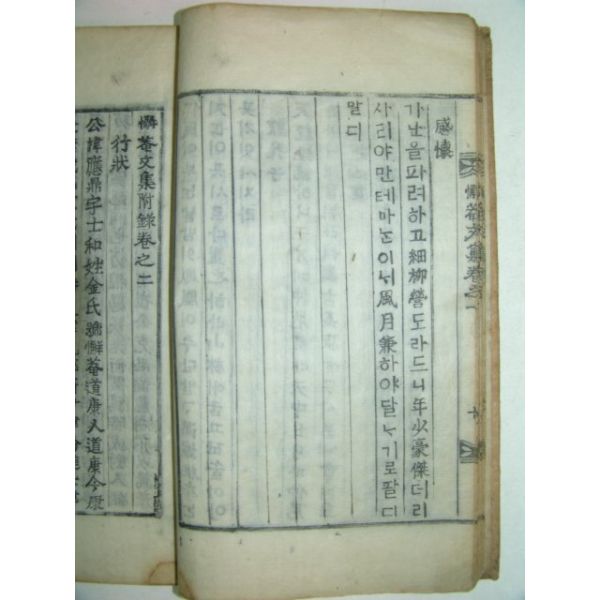 懈菴文集卷之一
感懷
가난을파려하고細柳營도라드니年少豪傑더리
사리야만테마는이서風月兼하야달ᄂᆞ기로팔디
말디
懈菴文集附錄卷之二
行狀
公諱應鼎字士和姓金氏號懈菴道康人道康今康